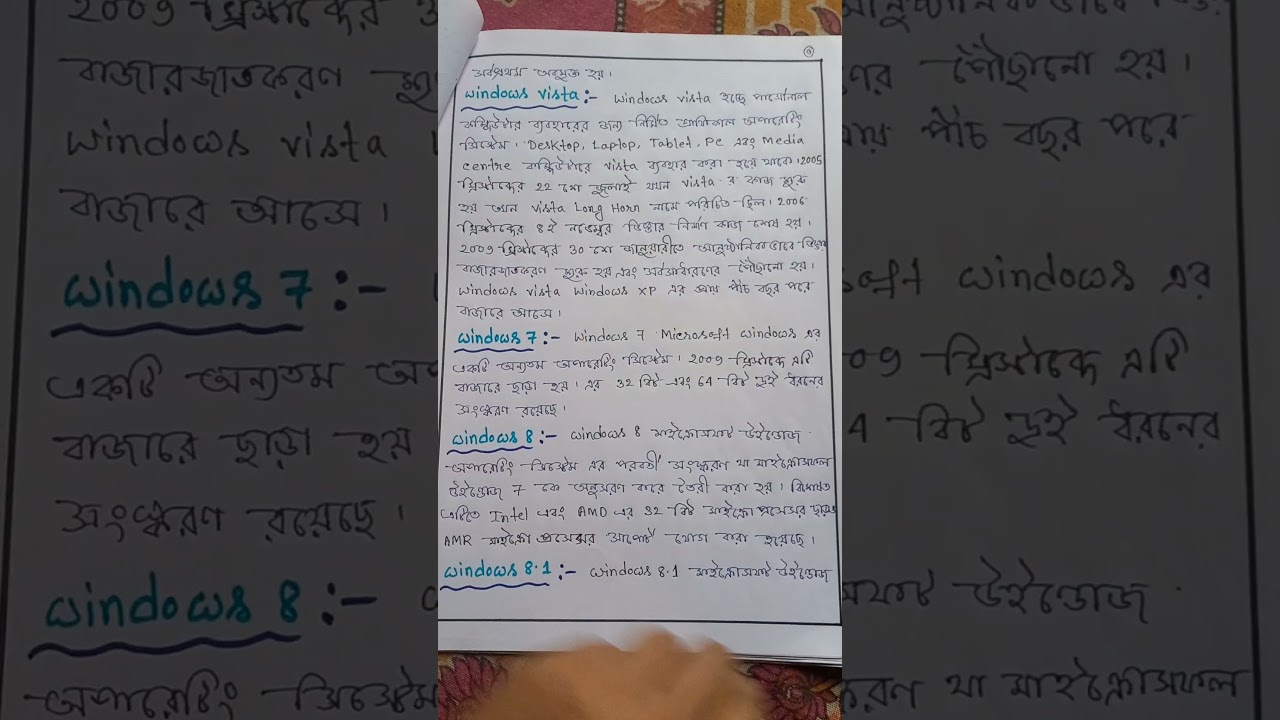 সর্বপ্রথম অবমুক্ত হয়।
Windows vista :- Windows vista হচ্ছে পার্সোনাল
কম্পিউটার ব্যবহারের জন্য নির্মিত গ্রাফিকাল অপারেটিং
সিস্টেম। Desktop, Laptop, Tablet, PC এবং Media
centre কম্পিউটারে vista ব্যবহার করা হয়ে থাকে। 2005
খ্রিস্টাব্দের 22 শে জুলাই যখন vista র কাজ শুরু
হয় তখন vista Long Horn নামে পরিচিত ছিল। 2006
খ্রিস্টাব্দের ৪ই নভেম্বর ভিস্তার নির্মাণ কাজ শেষ হয়।
২০০৭ খ্রিস্টাব্দের 30 শে জানুয়ারীতে আনুষ্ঠানিকভাবে
বাজারজাতকরণ শুরু হয় এবং সর্বসাধারণের পৌঁছানো হয়।
Windows vista Windows XP এর প্রায় পাঁচ বছর পরে
বাজারে আসে।
Windows 7 :- Windows 7 Microsoft Windows এর
একটি অন্যতম অপারেটিং সিস্টেম। 2009 খ্রিস্টাব্দে এটি
বাজারে ছাড়া হয়। এর 32 বিট এবং 64 বিট দুই ধরনের
সংস্করণ রয়েছে।
Windows 8 :- Windows 8 মাইক্রোসফট উইন্ডোজ
অপারেটিং সিস্টেম এর পরবর্তী সংস্করণ যা মাইক্রোসফল
উইন্ডোজ 7 কে অনুসরণ করে তৈরী করা হয়।
এটিতে Intel এবং AMD এর 32 বিট মাইক্রো প্রসেসর ছাড়াও
AMR মাইক্রো প্রসেসর সাপোর্ট যোগ করা হয়েছে।
Windows 8.1 :- Windows 8.1 মাইক্রোসফট উইন্ডোজ